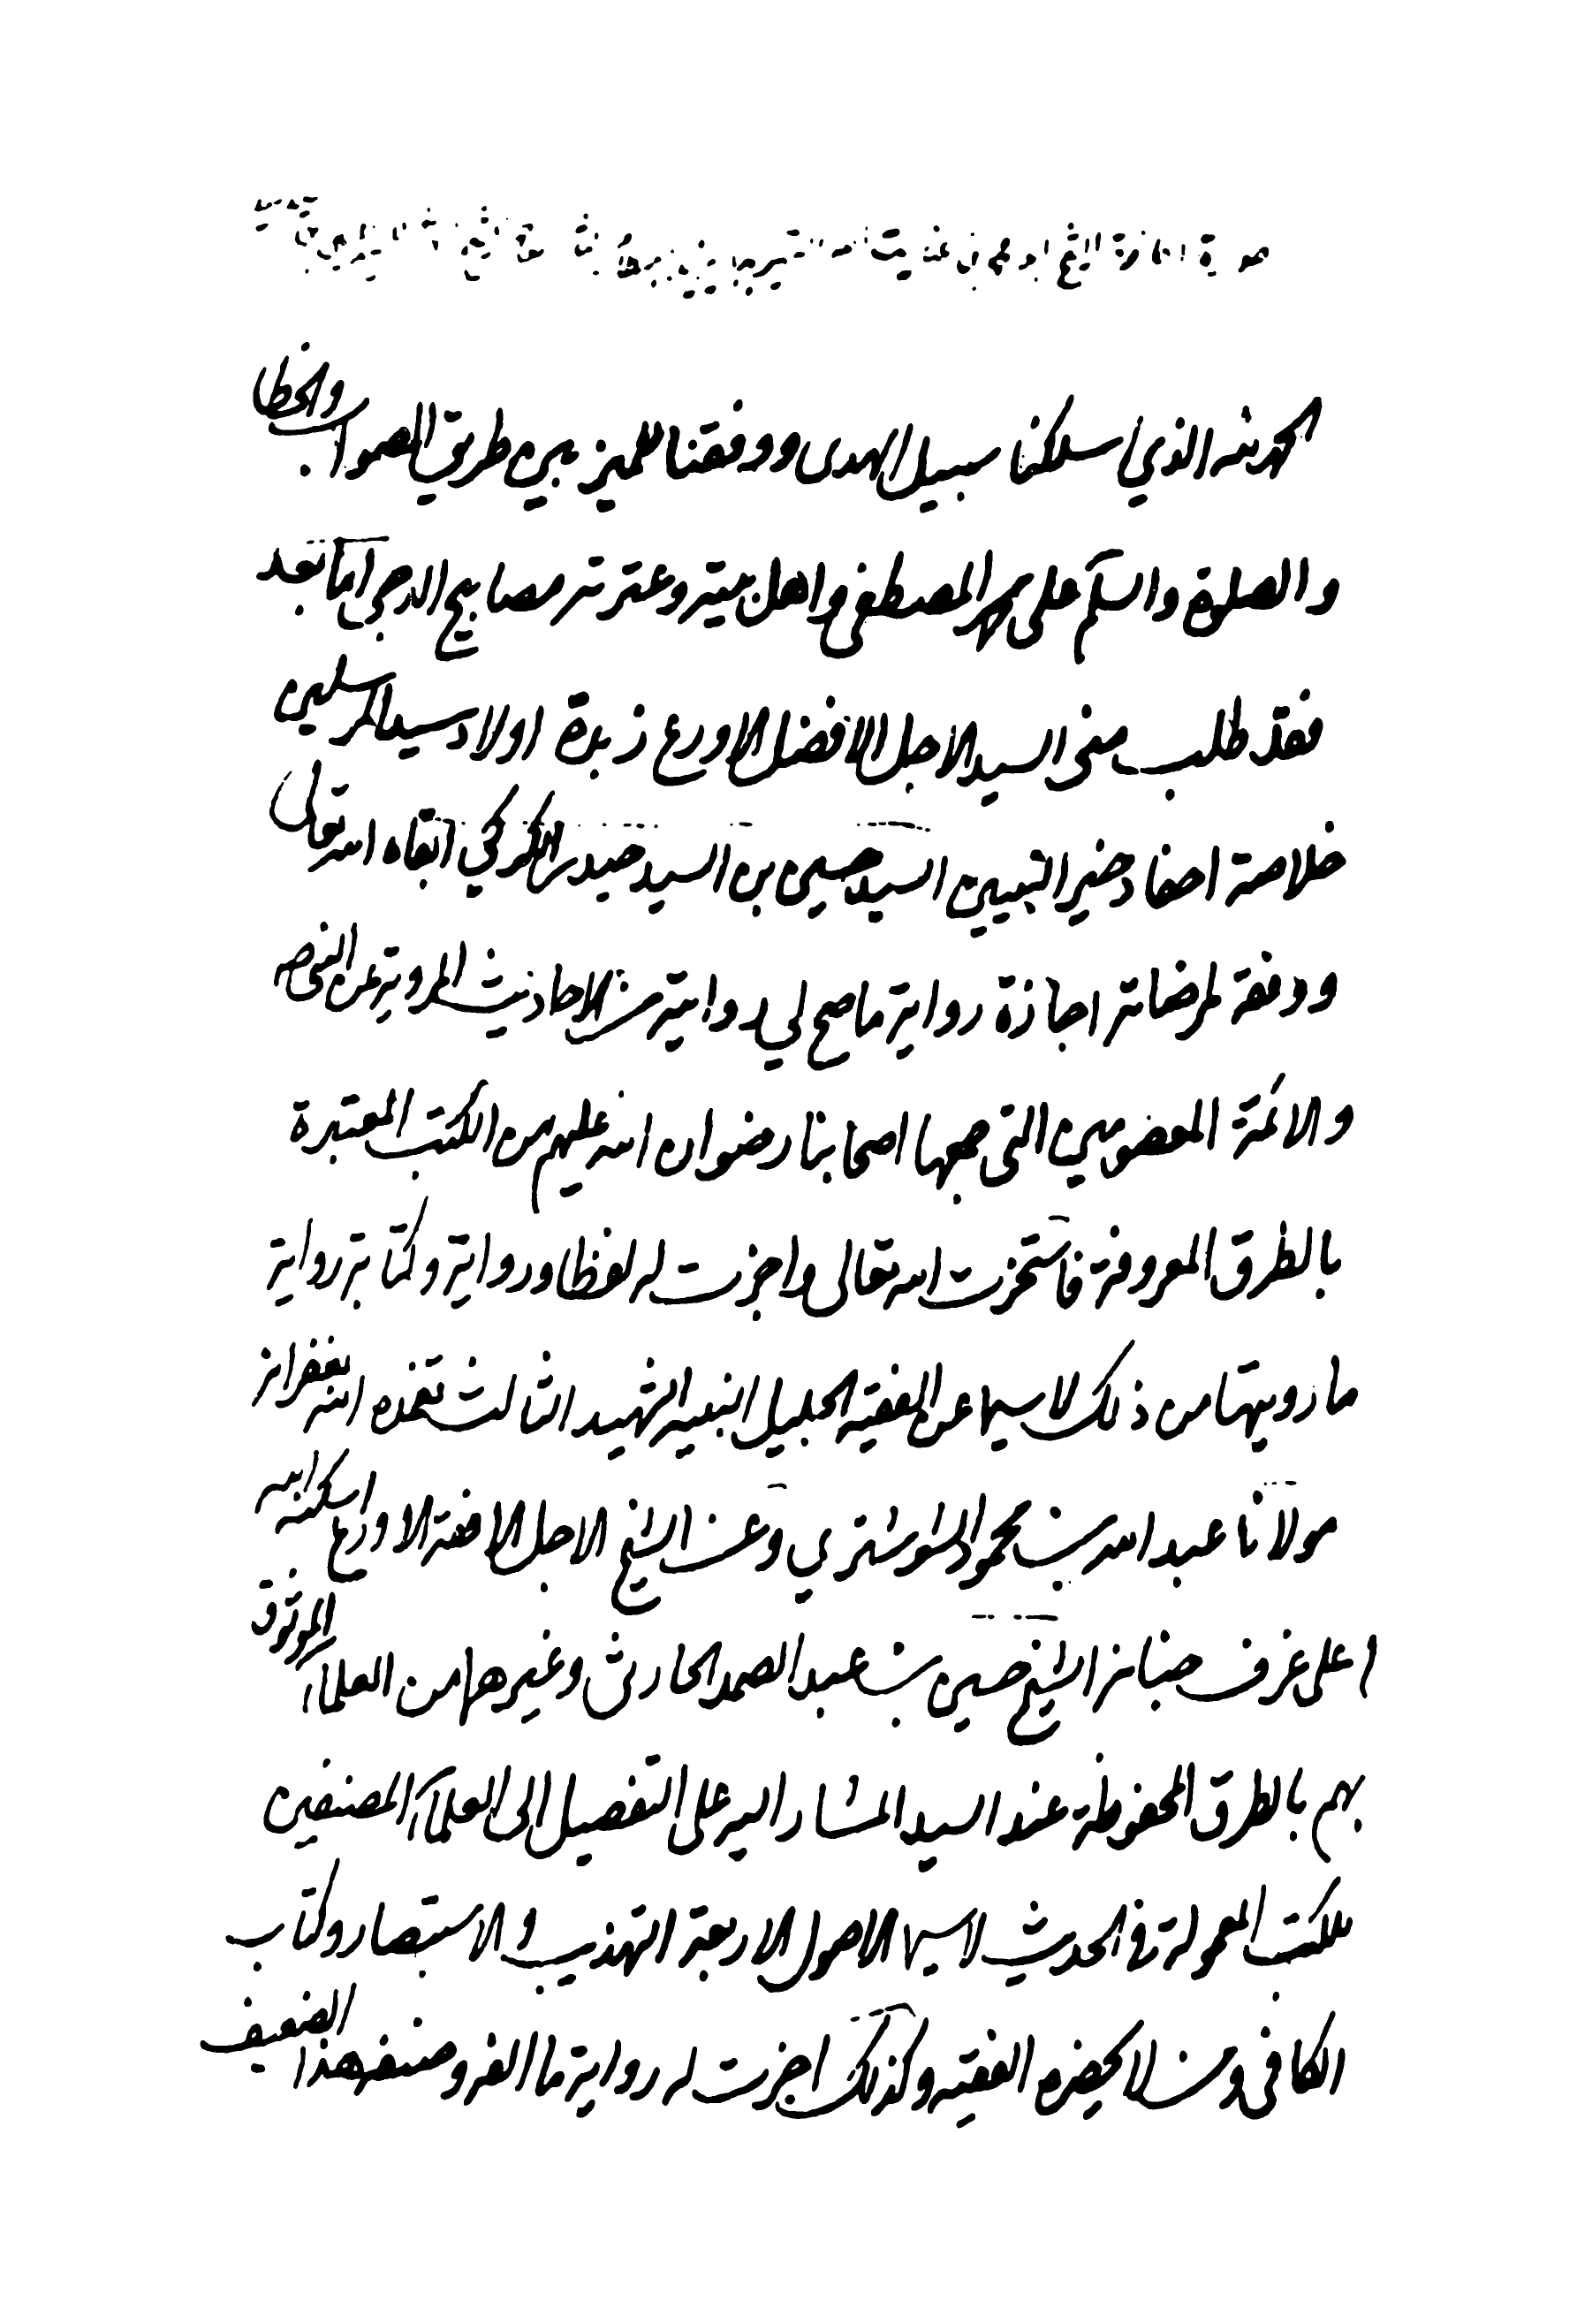 صورة اجازة الشيخ ابو محمد بن عناية الله
الحمد لله الذي اسلكنا سبيل الهدى ووفقنا للميز بين طريق الصواب والخطا
والصلوة والسلم على محمد المصطفى واهل بيته وعترته مصابيح الدجى اما بعد
فقد طلب منى السيد الاجل الافضل الاورع زبدة اولاد سيد المرسلين
خلاصة احفاد خير النبيين السيد حسين بن السيد حيدر الكركي ابقاه الله تعالى
ووفقه لمرضاته اجازة رواية ما صح لي روايته من الاحاديث المروية عن النبي صه
والائمة المعصومين التى جمعها اصحابنا رضوان الله عليهم من الكتب المعتبرة
بالطرق المعروفة فاستخرت الله تعالى واجزت له لفظا ورواية وكتابة رواية
ما رويتها من ذلك لا سيما عن الفقيه الجليل النبيه الشهيد الثالث تغمده الله بغفرانه
مولانا عبد الله بن محمود الشوشتري وعن الشيخ الاجل الافقه الاورع اسكنه الله
اعلى غرف جنانه الشيخ حسين بن عبد الصمد الحارثى وغيرهما من العلماء الموثوق
بهم بالطرق المحفوظة عند السيد المشار اليه على التفصيل الى العلماء المصنفين
للكتب المعمولة فى الحديث لا سيما الاصول الاربعة التهذيب والاستبصار وكتاب
الكافى ومن لا يحضره الفقيه وكذلك اجزت له رواية ما الفه وصنفه هذا الضعيف